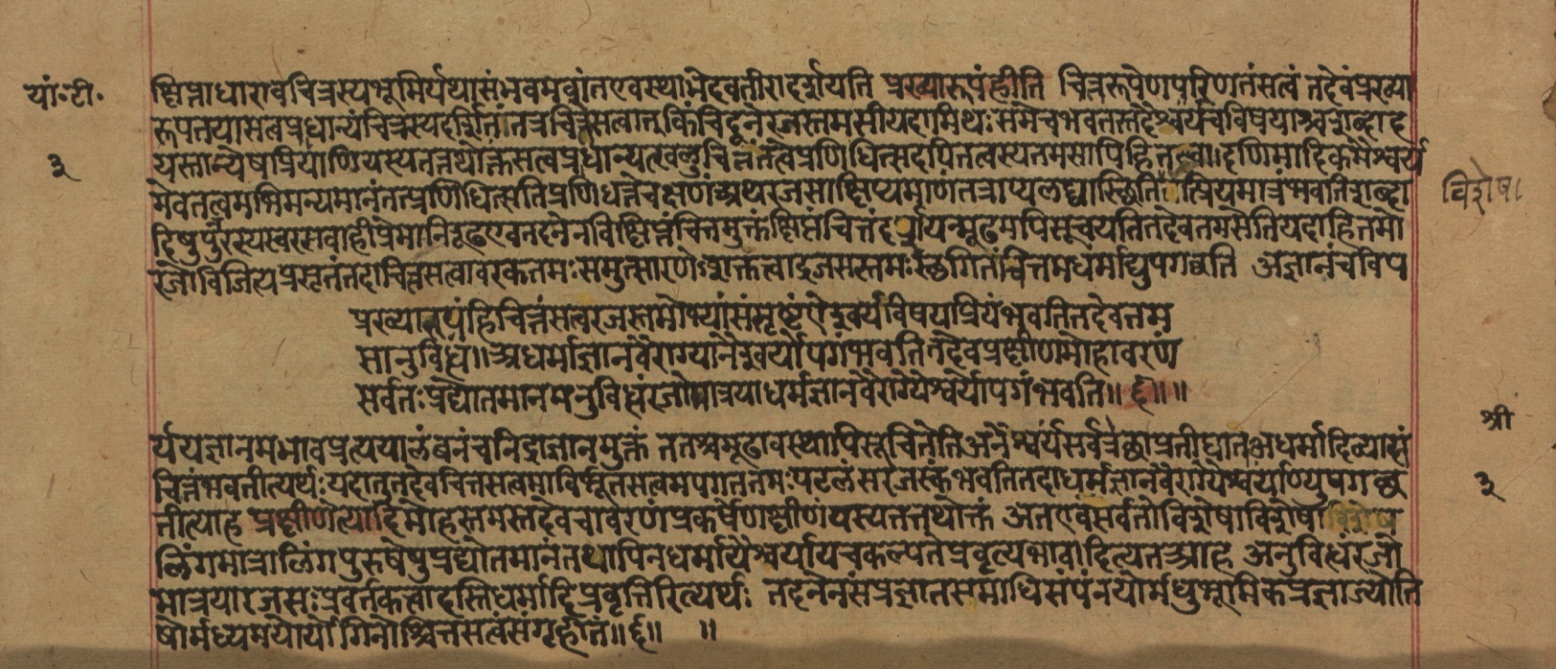 यां॰टी॰
३
क्षिप्ताधाराव चित्रस्यभूमिर्यथासंभवमवांतएवस्थामेदवतीरादर्शयति प्रख्यारूपंहीति चित्ररूपेणपरिणतंसत्वं तदेवंप्रख्या
रूपतयासत्वप्राधान्यंचित्तस्यदर्शितांतत्रचित्तेसत्वात् किंचिदूनेरजस्तमसीयदामिथः समेचभवतस्तदैश्वर्यंचविषयाश्चशब्दाद
यस्तान्येषप्रियाणियस्यतत्तथोक्तंसत्वप्राधान्यात्खलुचित्तंतत्वेप्रणिधित्सदपितत्वस्यतमसापिहितत्वा॥दणिमादिकमैश्वर्य
मेवतत्वमभिमन्यमानंतत्प्रणिधित्सतिप्रणिधत्तेचक्षणं अथरजसाक्षिप्यमाणंतत्राप्यलब्धास्छितितत्प्रियमात्रंभवतिशब्दा
विशेष।
दिषुपुनरस्यस्वरसवाहीप्रेमानिरूढएवतदनेनविक्षिप्तंचित्तमुक्तंक्षिप्तंचित्तंदर्शयन्मूढमपिसूचयतितदेवतमसेतियदाहितमो
रजोविजित्यप्रसृतंतदाचित्तसत्वावरकतमःसमुत्सारणेऽशक्तत्वाद्रजसस्तमःस्छगितंचित्तमधर्माद्युपगछति अज्ञानंचविप
प्रख्यारूपंहिचित्तंसत्वरजस्तमोभ्यांसंसृष्टंऐश्वर्यविषयप्रियंभवतितदेवतम
सानुविद्धं॥अधर्माज्ञानवैराग्यानैश्वर्योपगंभवतितदेवप्रक्षीणमोहावरणं
सर्वतःप्रद्योतमानमनुविद्धंरजोमात्रयाधर्मज्ञानवैराग्यैश्वर्योपगंभवति॥६॥॥
र्ययज्ञानमभावप्रत्ययालंबनंचनिद्राज्ञानमुक्तं ततश्चमूढावस्थापिसूचितेति अनैश्वर्यंसर्वत्रेछाप्रतीघातःअधर्मादिव्याप्तं
श्री
चित्तंभवतीत्यर्थःयदातुतदेवचित्तसत्वमाविर्भूतसत्वमपगततमःपटलंसरजस्कंभवतितदाधर्मज्ञानवैराग्यैश्वर्याण्युपगछ
३
तीत्याह प्रक्षीणेत्यादिमोहस्तमस्तदेवचावरणंप्रकर्षेणक्षीणंयस्यतत्तथोक्तं अतएवसर्वतोविशेषाविशेष
लिंगमात्रालिंगपुरुषेषुप्रद्योतमानंतथापिनधर्मायैश्वर्यायचकल्पतेप्रवृत्यभावादित्यतआह अनुविद्धंरजो
मात्रयारजसःप्रवर्तकत्वादस्तिधर्मादिप्रवृत्तिरित्यर्थः तदनेनसंप्रज्ञातसमाधिसंपंनयोर्मधुभूमिकप्रज्ञाज्योति
षोर्मध्यमयोर्योगिनोश्चित्तसत्वंसंगृहीतं॥६॥ ॥